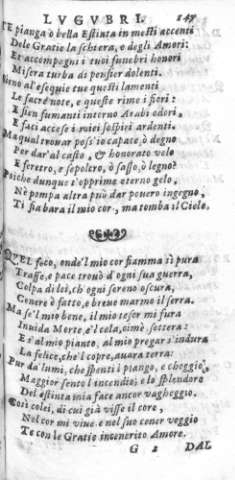 LVGVBRI. 147
TE pianga ò bella Estinta in mesti accenti
Dele Gratie la schiera, e degli Amori:
Et accompagni i tuoi funebri honori
Misera turba di pensier dolenti.
Sieno al'esequie tue questi lamenti
Le sacre note, e queste rime i fiori:
I sien fumanti interno Arabi odori,
E faci accese i miei sospiri ardenti.
Ma qual trouar poss'io capace, ò degno
Per dar'al casto, & honorato velo
E feretro, e sepolcro, ò sasso, ò legno?
Poiche dunque t'opprime eterno gelo,
Nè pompa altra può dar pouero ingegno,
Ti sia bara il mio cor, ma tomba il Cielo.
QVEL foco, onde'l mio cor fiamma sì pura
Trasse, e pace trouò d'ogni sua guerra,
Colpa di lei, ch'ogni sereno oscura,
Cenere è fatto, e breue marmo il serra.
Ma se'l mio bene, il mio tesor mi fura
Inuida Morte, e'l cela, oimè, sotterra:
Et al mio pianto, al mio pregar s'indura
La felice, che'l copre, auara terra:
Pur da'lumi, che spenti i piango, e cheggio,
Maggior sento l'incendio; e lo splendore
Del estinta mia face ancor vagheggio.
Così colei, di cui già visse il core,
Nel cor mi viue, e nel suo cener veggio
Te con le Gratie incenerito Amore.
G 2 DAL